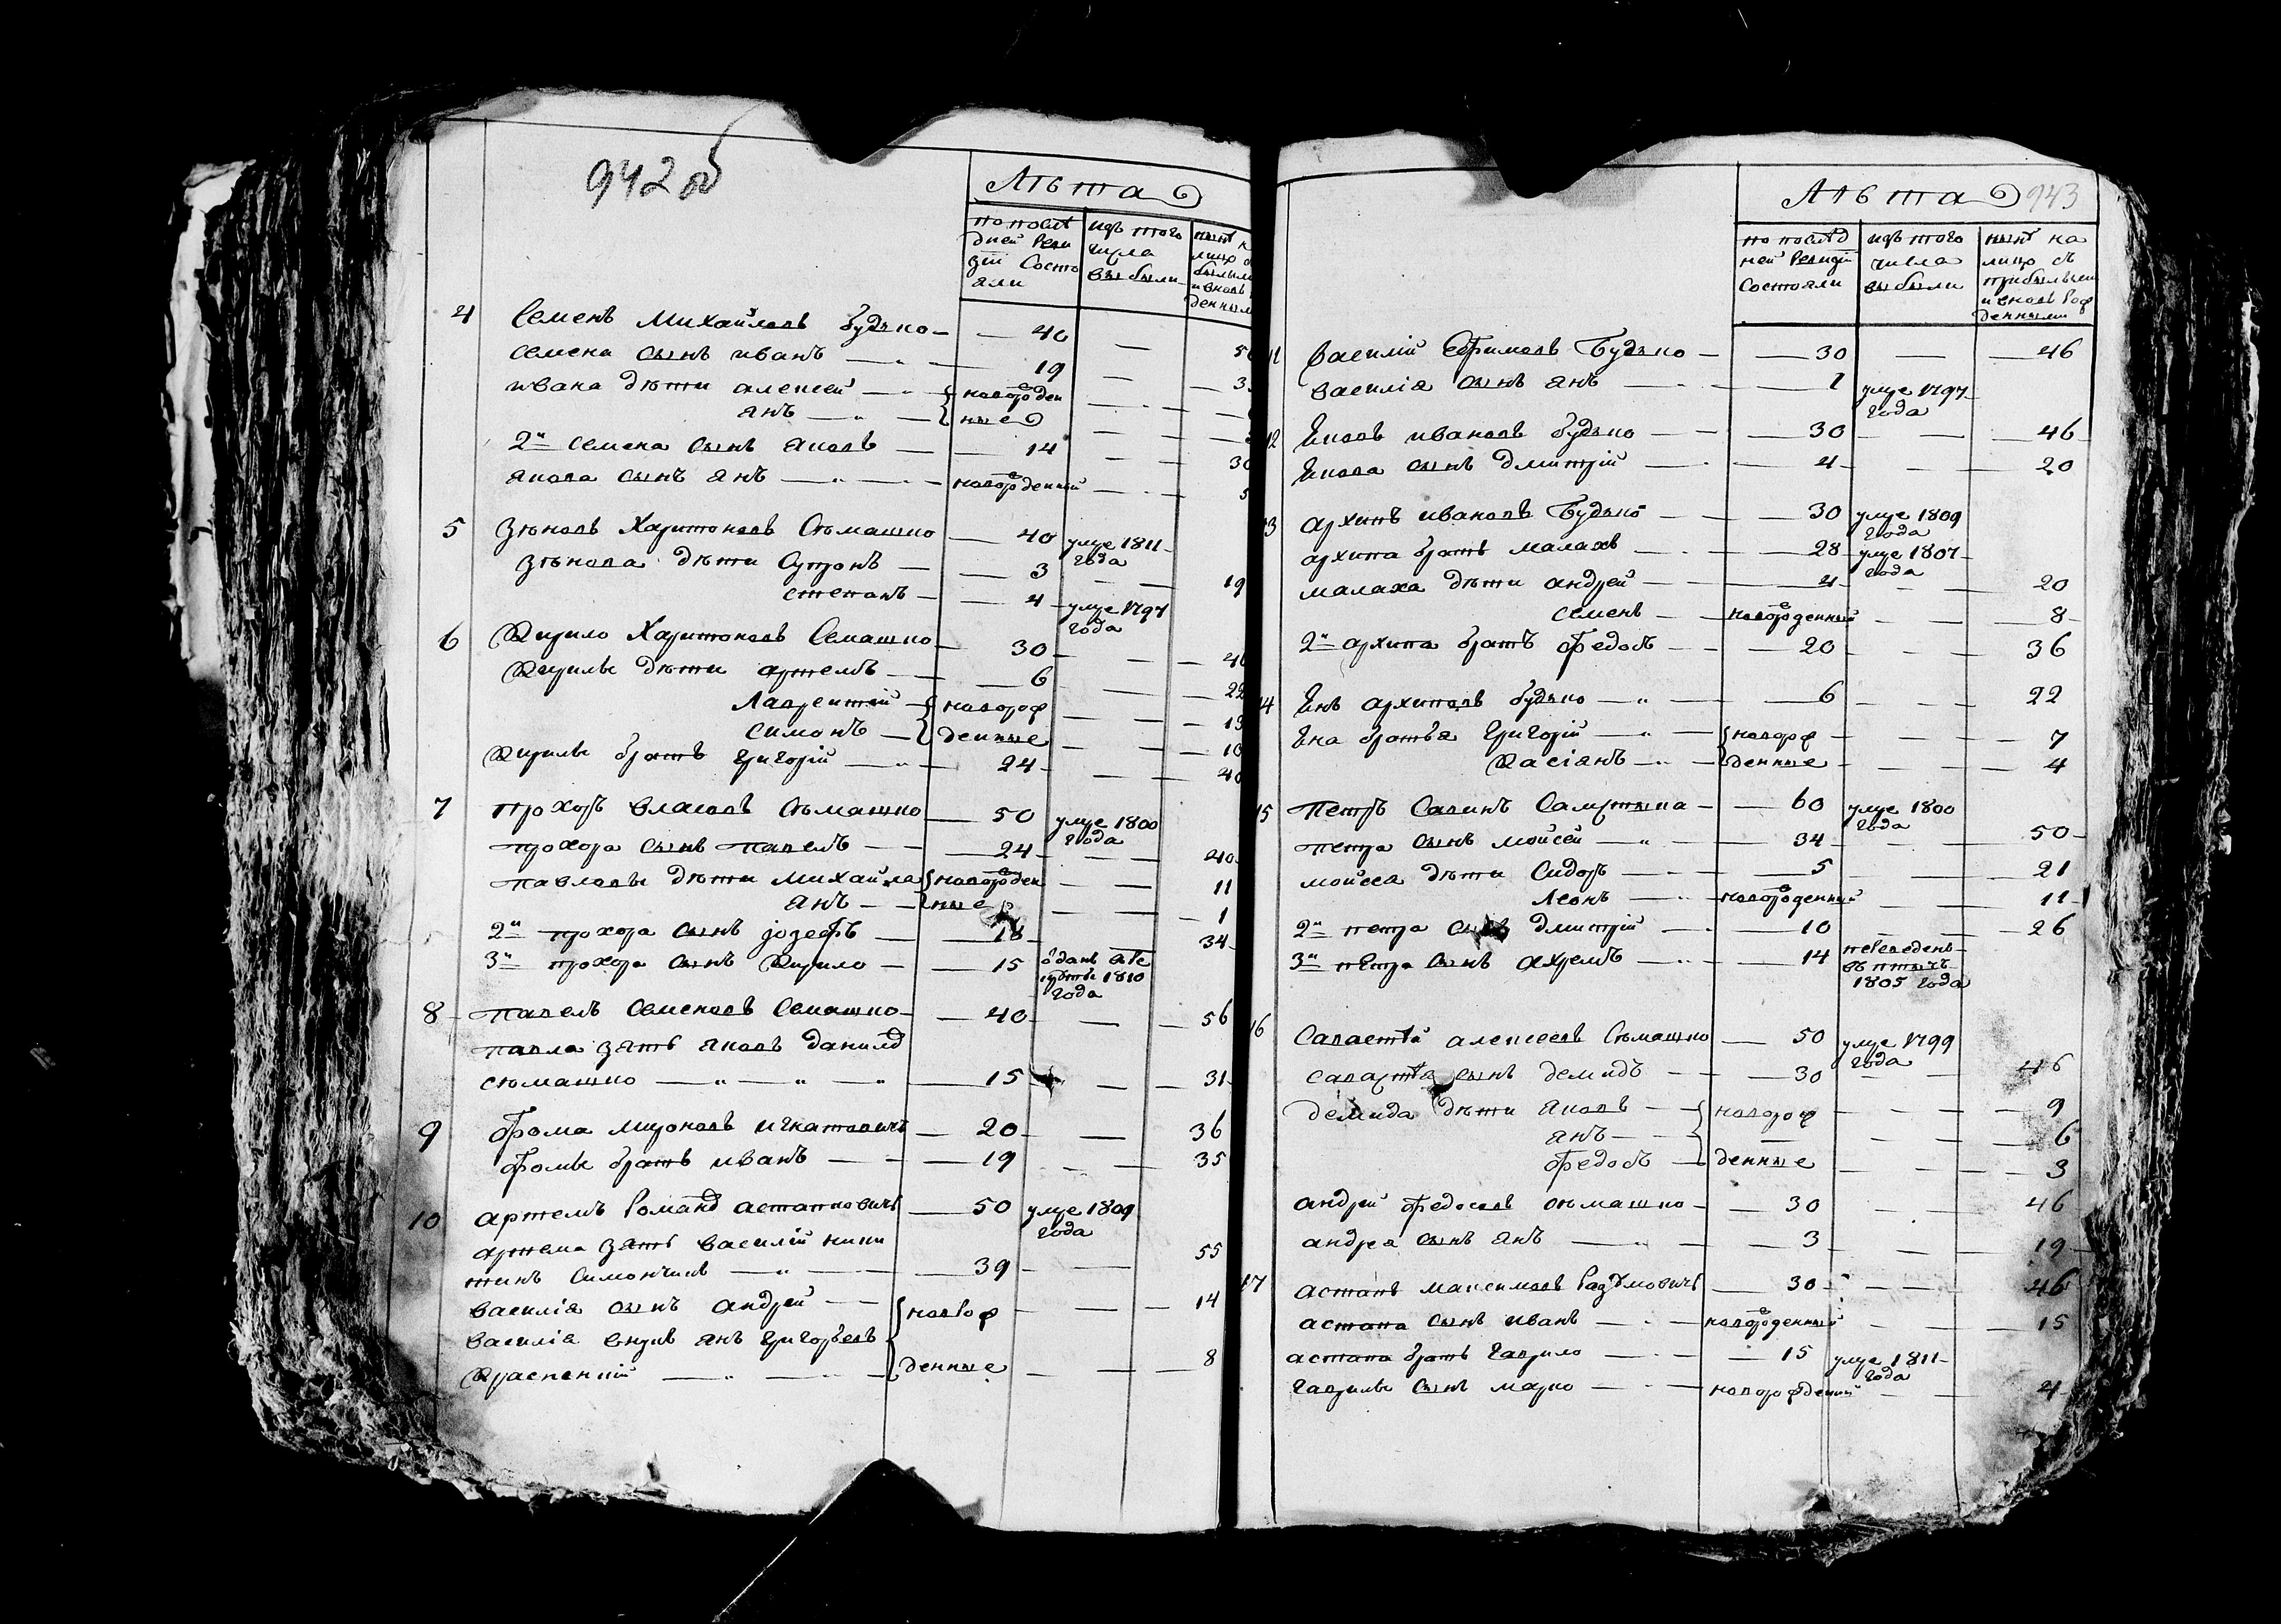 942 об
Лѣта
по послѣ изъ того нынѣ н
дней Реви числа лицо с
зіи Состо выбыли былым
яли и вновь
денным
4 Семенъ Михайловъ будько — 40 —
Семена сынъ иванъ — 19 —
ивана дѣти алексей — новорожден
янъ — ные
2й Семена сынъ яковъ — 14 — 30
якова сынъ янъ — новорожденный — 5
5 Зѣновъ Харитоновъ Сѣмашко — 40 умре 1811
года
Зѣнова дѣти Супронъ — 3 — 19
степанъ — 4 умре 1797
года
6 Кирило Харитоновъ Семашко — 30 — 46
Кирилы дѣти артемъ — 6 — 22
Лаврентій — новорож — 13
Симонъ — денные — 10
Кирилы братъ григорій — 24 — 40
7 прохоръ власовъ Сѣмашко — 50 умре 1800
года
прохора сынъ павелъ — 24 — 40
павловы дѣти Михайла новорожден — 11
янъ — ные — 1
2й прохора сынъ јозефъ — 18 — 34
3й прохора сынъ Кирило — 15 Ѡданъ в ре
круты 1810
года
8 павелъ Семеновъ Семашко — 40 — 56
павла зять яковъ данилов
сѣмашко — 15 — 31
9 фома мироновъ игнатовичъ — 20 — 36
фомы братъ иванъ — 19 — 35
10 артемъ Романов астапковичъ — 50 умре 1809
года
артема зять василій ники
тинъ Симончикъ — 39 — 55
василія сынъ андрей — новорож — 14
василія внукъ янъ григорьевъ
Красненкій — денные — 8
943
Лѣта
по послѣд изъ того нынѣ на
ней Ревизіи числа лицо съ
Состояли выбыли прибылыми
и вновь Рож
денными
11 василій Ефимовъ Будько — 30 — 46
василія сынъ янъ — 1 умре 1797
года
12 Яковъ ивановъ будько — 30 — 46
Якова сынъ дмитрій — 4 — 20
13 архипъ ивановъ Будько — 30 умре 1809
года
архипа братъ малахъ — 28 умре 1807
года
малаха дѣти андрей — 4 — 20
семенъ — новорожденный — 8
2й архипа братъ федосъ — 20 — 36
14 Янъ архиповъ будько — 6 — 22
Яна братья григорій — новорож — 7
Касіянъ — денные — 4
15 Петръ Савинъ Самутыка — 60 умре 1800
года
петра сынъ мойсей — 34 — 50
мойсея дѣти Сидоръ — 5 — 21
Леонъ — новорожденный — 11
2й петра сынъ дмитрій — 10 — 26
3й петра сынъ ахремъ — 14 переведенъ
въ птычъ
1805 года
16 Савастѣй алексеевъ Сѣмашко — 50 умре 1799
года
савастѣя сынъ демидъ — 30 — 46
демида дѣти яковъ — новорож — 9
янъ — 6
федосъ — денные — 3
андрей федосовъ сѣмашко — 30 — 46
андрея сынъ янъ — 3 — 19
17 астапъ максимовъ Радѣмовичъ — 30 — 46
астапа сынъ иванъ — новорожденный — 15
астапа братъ гаврило — 15 умре 1811
года
гаврилы сынъ марко — новорожденный — 4